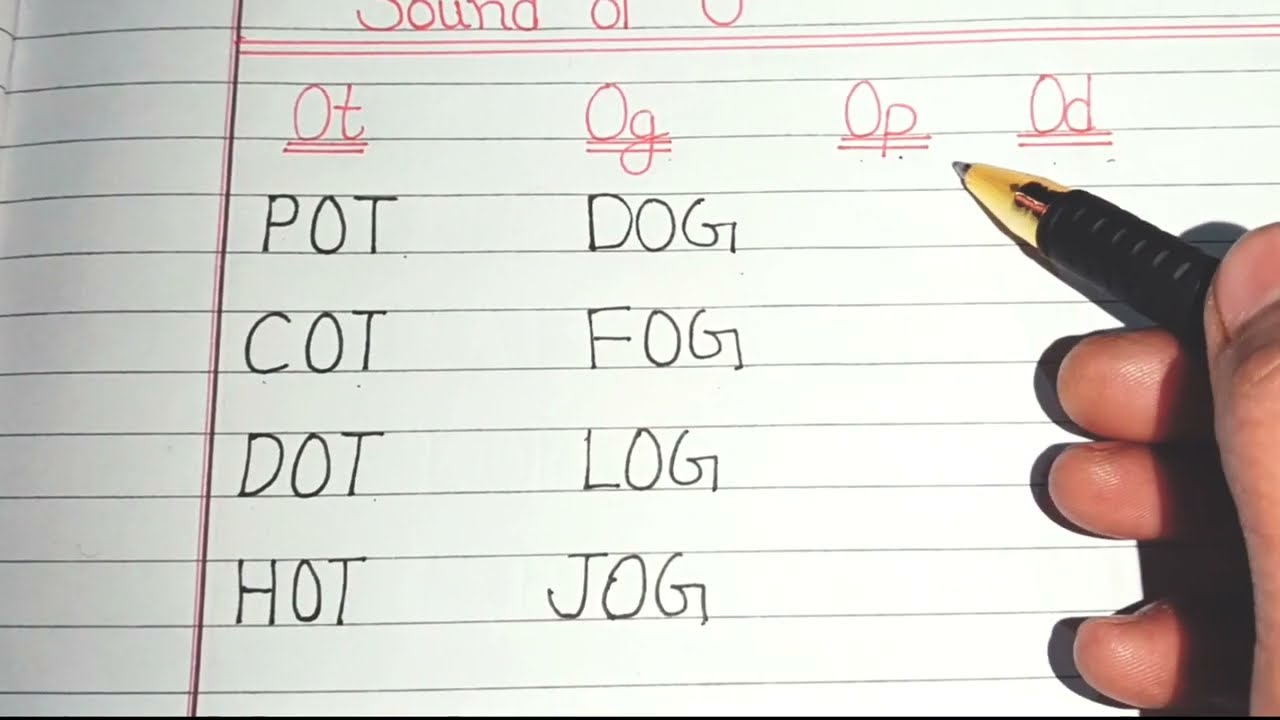 Sound of O
Ot Og Op Od
POT DOG
COT FOG
DOT LOG
HOT JOG